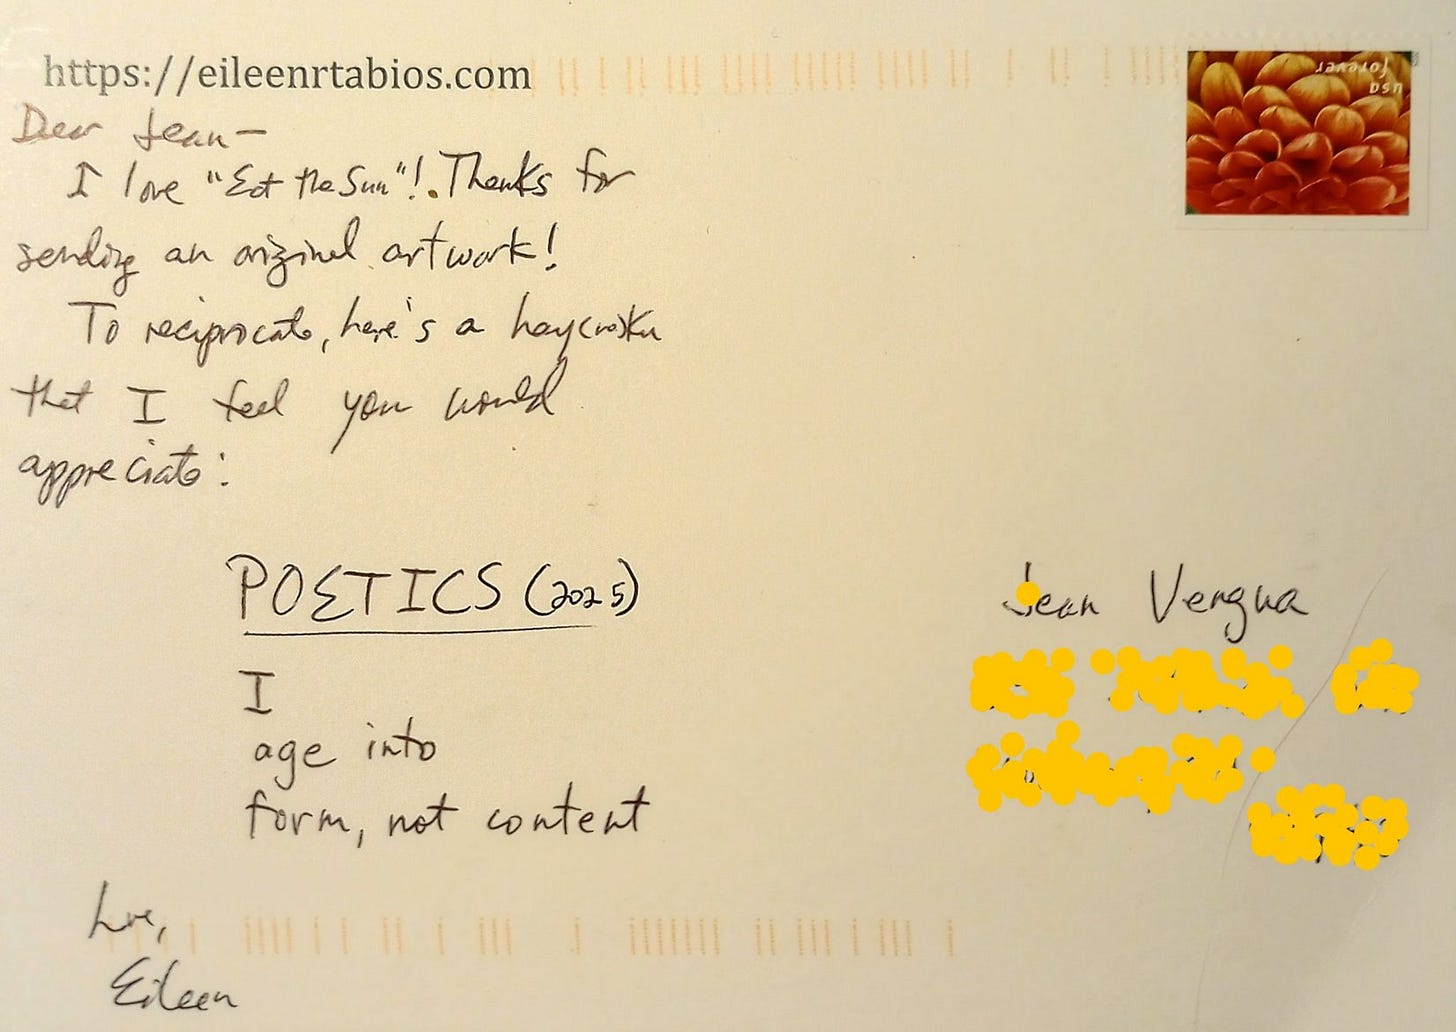 https://eileenrtabios.com
Dear Jean—
I love "Eat the Sun"! Thanks for
sending an original artwork!
To reciprocate, here's a hay(na)ku
that I feel you would
appreciate:
POETICS (2025)
I
age into
form, not content
Love,
Eileen
USA
forever
Jean Vengua